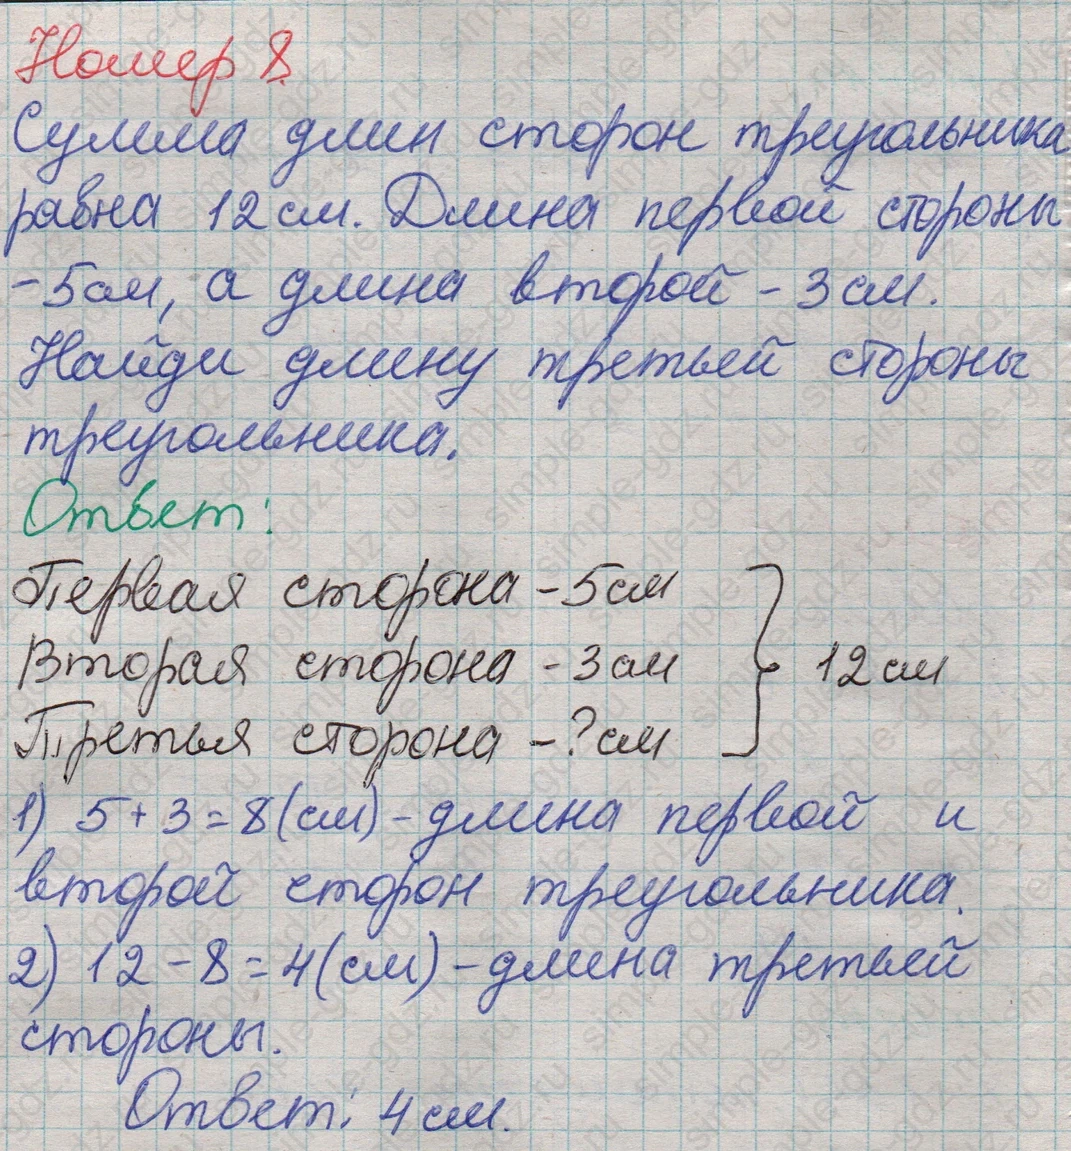 Номер 8.
Сумма длин сторон треугольника
равна 12 см. Длина первой стороны
- 5 см, а длина второй - 3 см.
Найди длину третьей стороны
треугольника.
Ответ:
Первая сторона - 5 см
Вторая сторона - 3 см
12 см
Третья сторона - ? см
1) 5 + 3 = 8 (см) - длина первой и
второй сторон треугольника.
2) 12 - 8 = 4 (см) - длина третьей
стороны.
Ответ: 4 см.
simple-gdz.ru